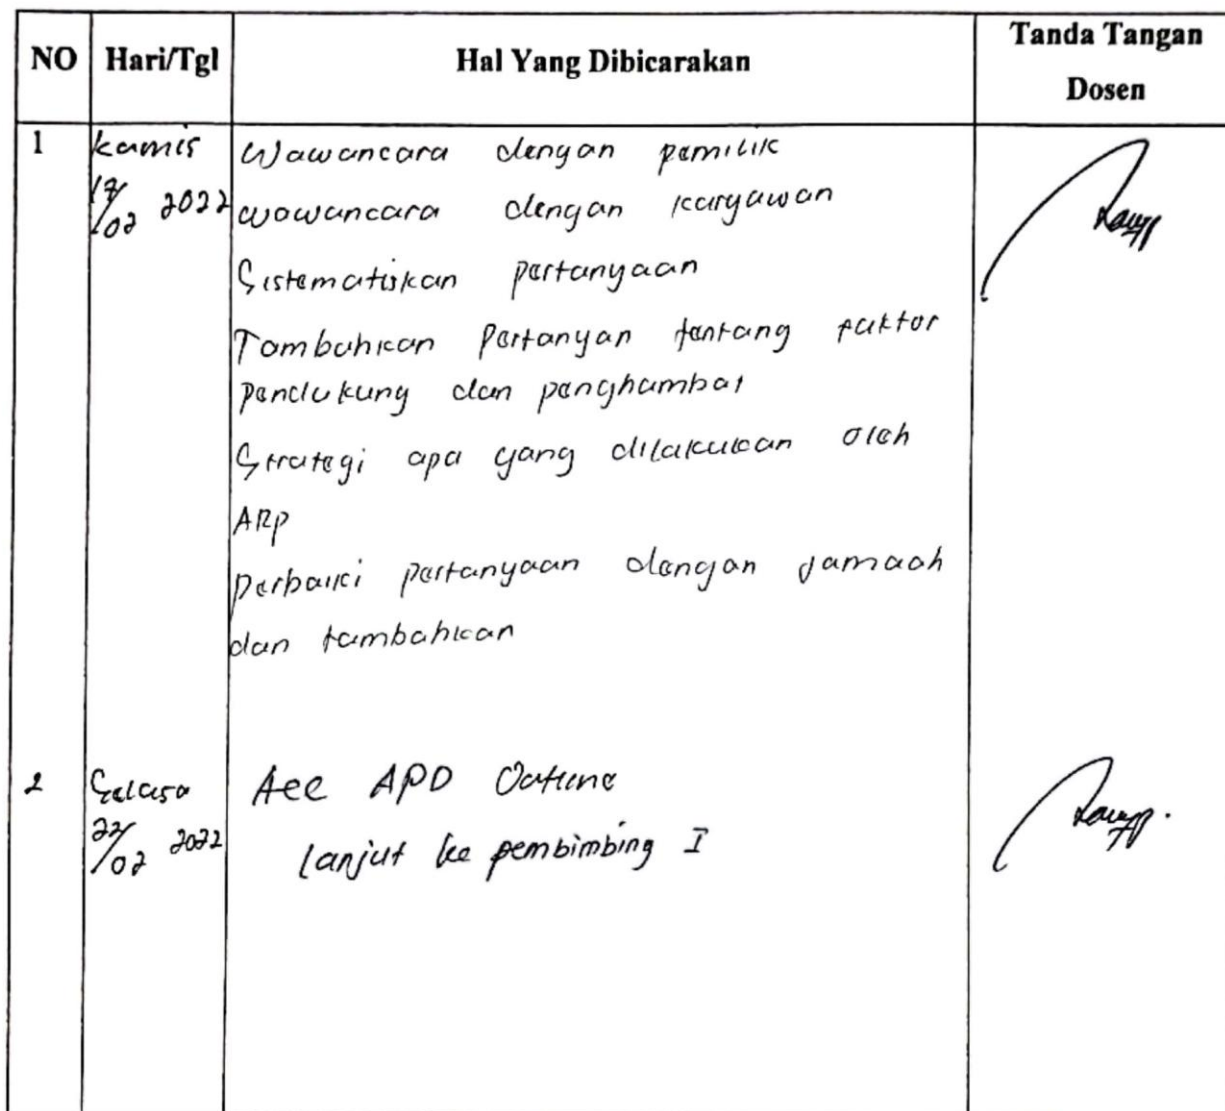 NO Hari/Tgl Hal Yang Dibicarakan Tanda Tangan Dosen
1 Kamis Wawancara dengan pemilik
17/02 2022 wawancara dengan karyawan
Sistematiskan pertanyaan
Tambahkan Pertanyan tentang faktor
pendukung dan penghambat
Strategi apa yang dilakukan oleh
ARP
perbaiki pertanyaan dengan jamaah
dan tambahkan
2 Selasa Acc APD Outline
22/02 2022 lanjut ke pembimbing I